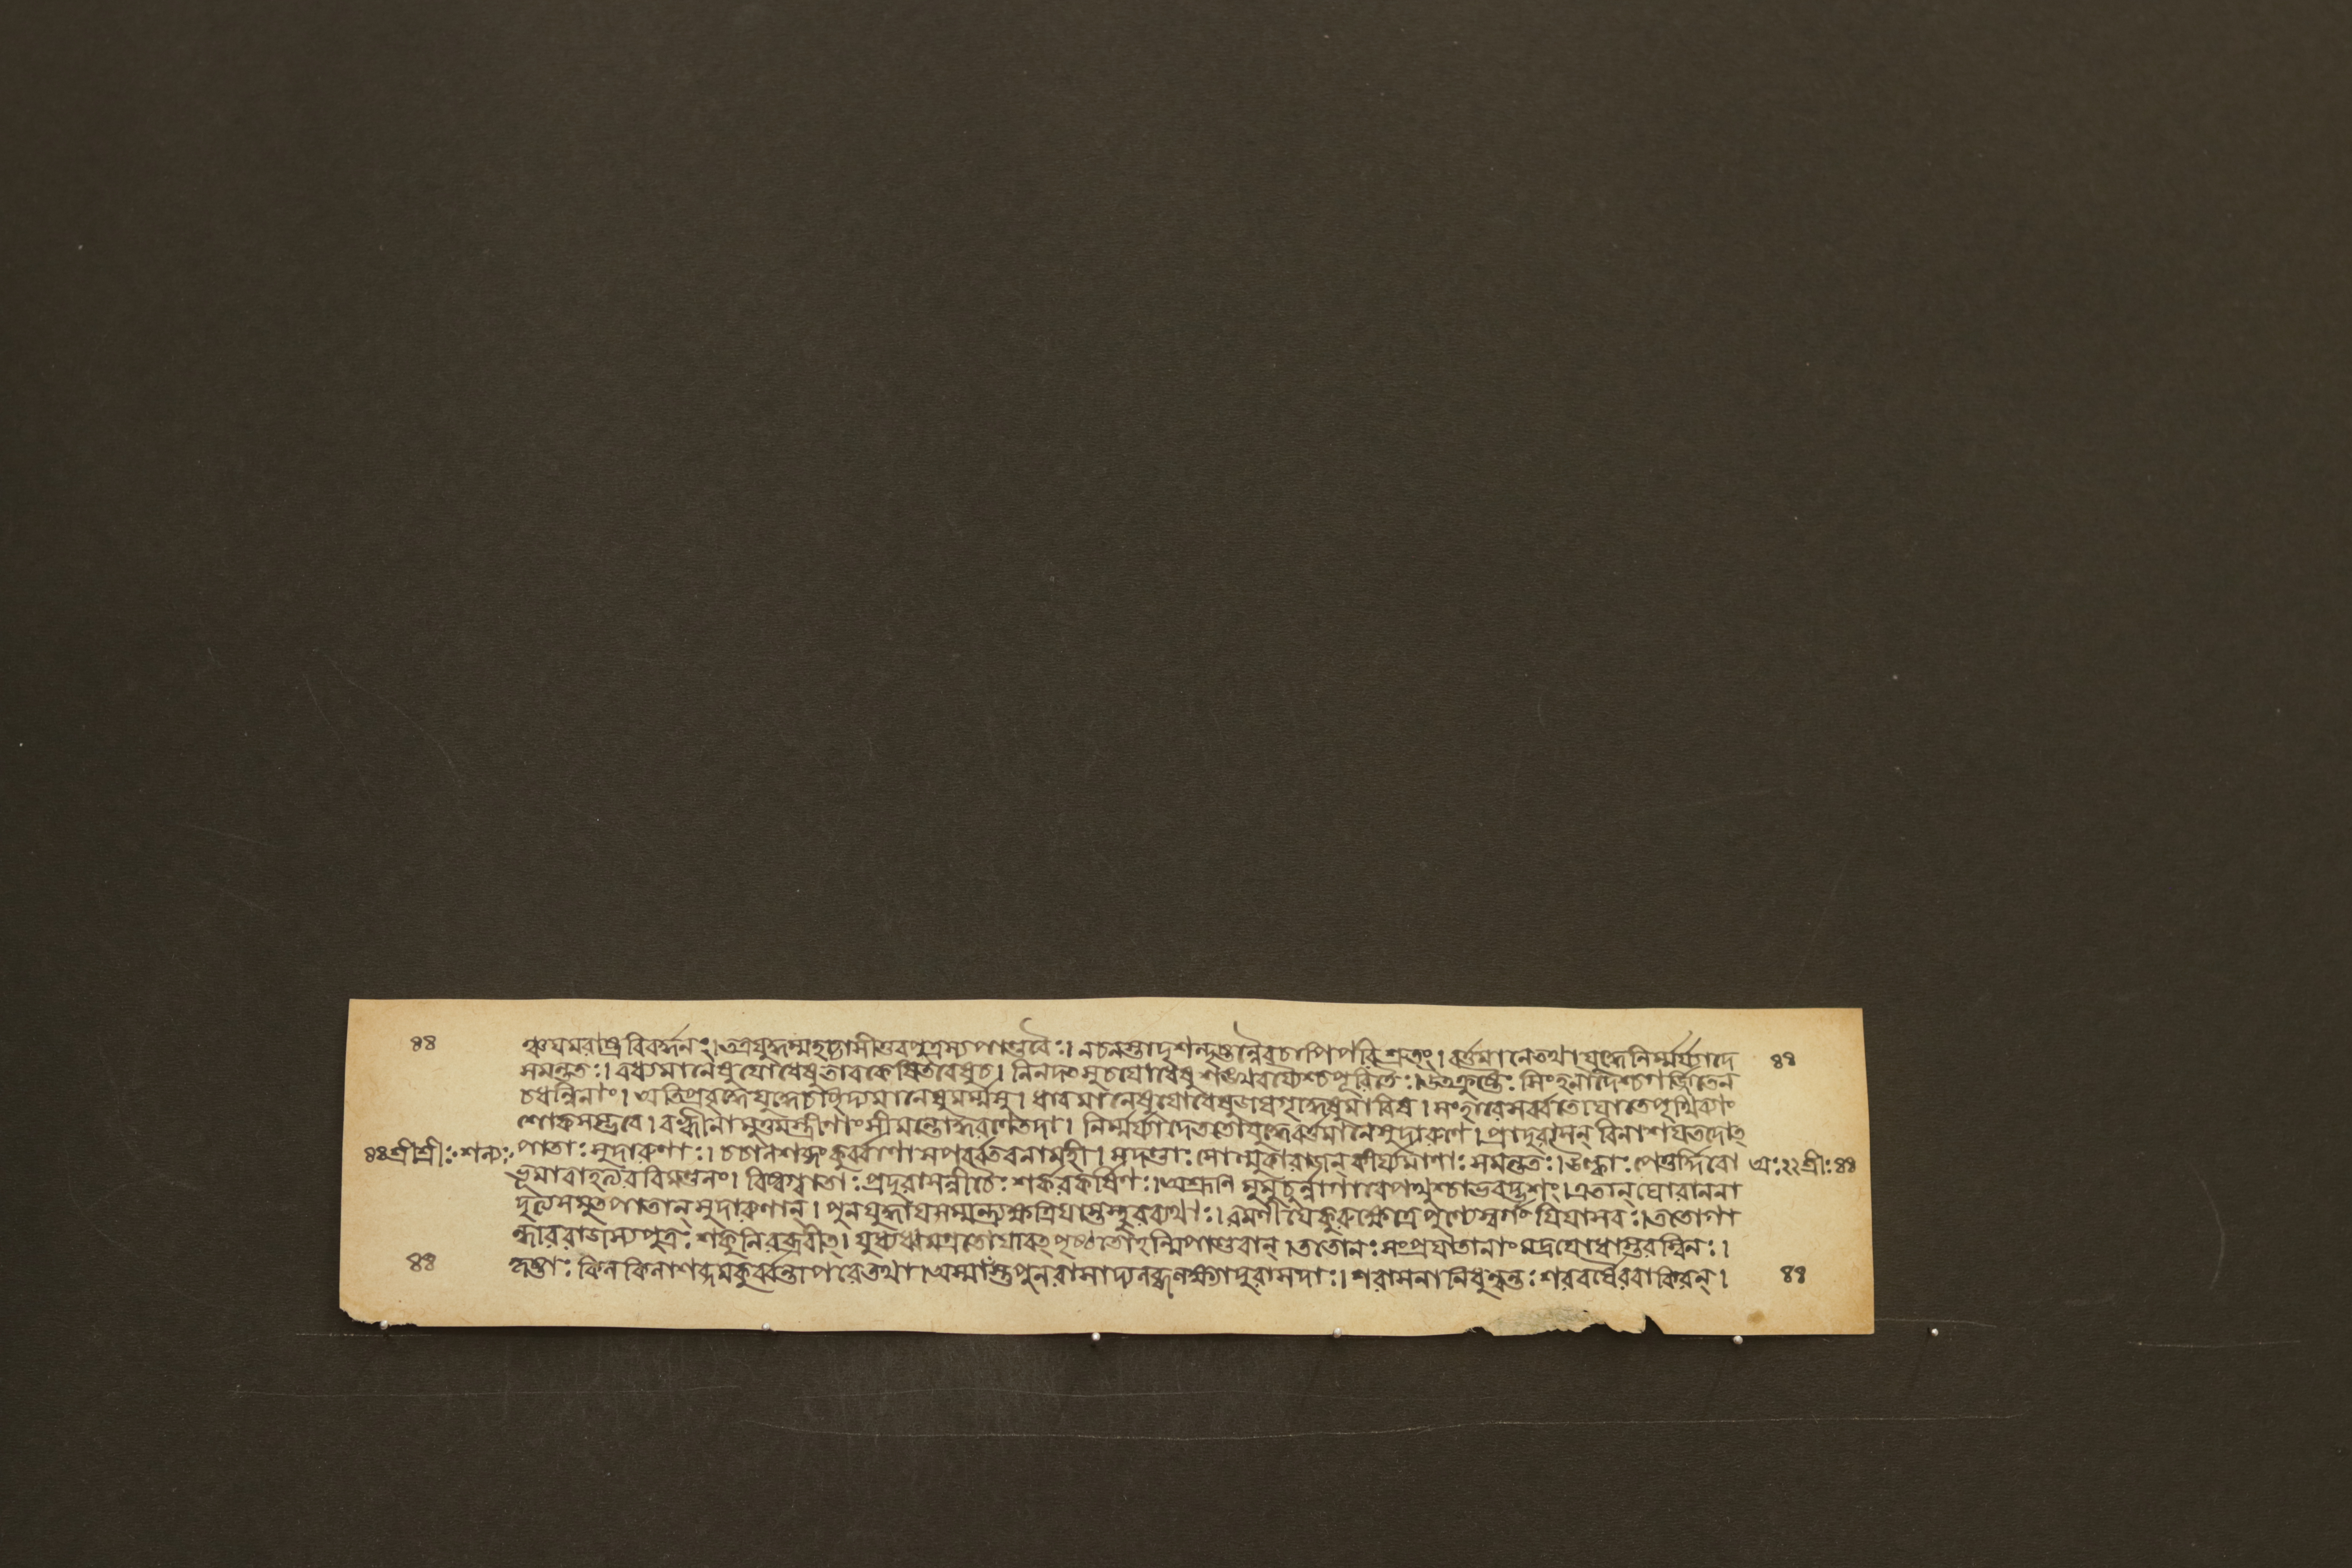 ৪৪ ঞ্চযমরাষ্ট্রবিবর্দ্ধনং। তত্রযুদ্ধম্মহচ্চাসীত্তবপুত্রস্যপাণ্ডবৈঃ। নচনস্তাদৃশন্দৃষ্টন্নৈবচাপিপরিশ্রুতং। বর্ত্তমানেতথাযুদ্ধেনির্ম্মর্য্যাদে ৪৪
সমন্ততঃ। বধ্যমানেষুযোধেষুতাবকেষ্বিতরেষুচ। নিনদৎসুচযোধেষুশঙ্খবর্য্যৈশ্চপূরিতৈঃ। উৎক্রুষ্টৈঃ সিংহনাদৈশ্চগর্জ্জিতেন
চধন্বিনাং। অতিপ্রবৃদ্ধেযুদ্ধেচছিদ্যমানেষুমর্ম্মসু। ধাবমানেষুযোধেষুজয়গৃদ্ধেষুমারিষ। সংহারেসর্ব্বতোঘাতেপৃথিব্যাং
শোকসম্ভবে। বহ্বীনামুত্তমস্ত্রীণাংসীমন্তোদ্ধরণেতদা। নির্ম্মর্য্যাদেততোযুদ্ধেবর্ত্তমানেসুদারুণে। প্রাদুরাসন্ বিনাশায়তদোৎ
৪৪ শ্রীশ্রীঃ শল্যঃ পাতাঃ সুদারুণাঃ। চচালশব্দংকুর্ব্বাণাসপর্ব্বতবনামহী। সদণ্ডাঃ সোল্মুকারাজন্ কীর্য্যমাণাঃ সমন্ততঃ। উল্কাঃ পেতুর্দ্দিবো অঃ২২শ্রীঃ৪৪
ভূমাবাহত্যরবিমণ্ডলং। বিষ্বগ্বাতাঃ প্রাদুরাসন্নীচৈঃ শর্করকর্ষিণঃ। অশ্রূণি মুমুচুর্ন্নাগাবেপথুশ্চাভবদ্ভৃশং। এতান্ ঘোরাননা
দৃত্যসমুৎপাতান্ সুদারুণান্। পুনর্যুদ্ধায়সম্মন্ত্র্যক্ষত্রিয়াস্তস্থুরব্যথাঃ। রমণীয়েকুরুক্ষেত্রেপুণ্যেস্বর্গংযিয়াসবঃ। ততোগা
ন্ধাররাজস্যপুত্রঃ শকুনিরব্রবীৎ। যুধ্যধ্বমগ্রতোযাবৎপৃষ্ঠতোহন্মিপাণ্ডবান্। ততোনঃ সংপ্রযাতানাংমদ্রযোধাস্তরস্বিনঃ।
৪৪ হৃষ্টাঃ কিলকিলাশব্দমকুর্ব্বন্তাপরেতথা। অস্মাংস্তুপুনরাসাদ্যলব্ধলক্ষ্যাদুরাসদাঃ। শরাসনানিধুন্বন্তঃ শরবর্ষৈরবাকিরন্। ৪৪